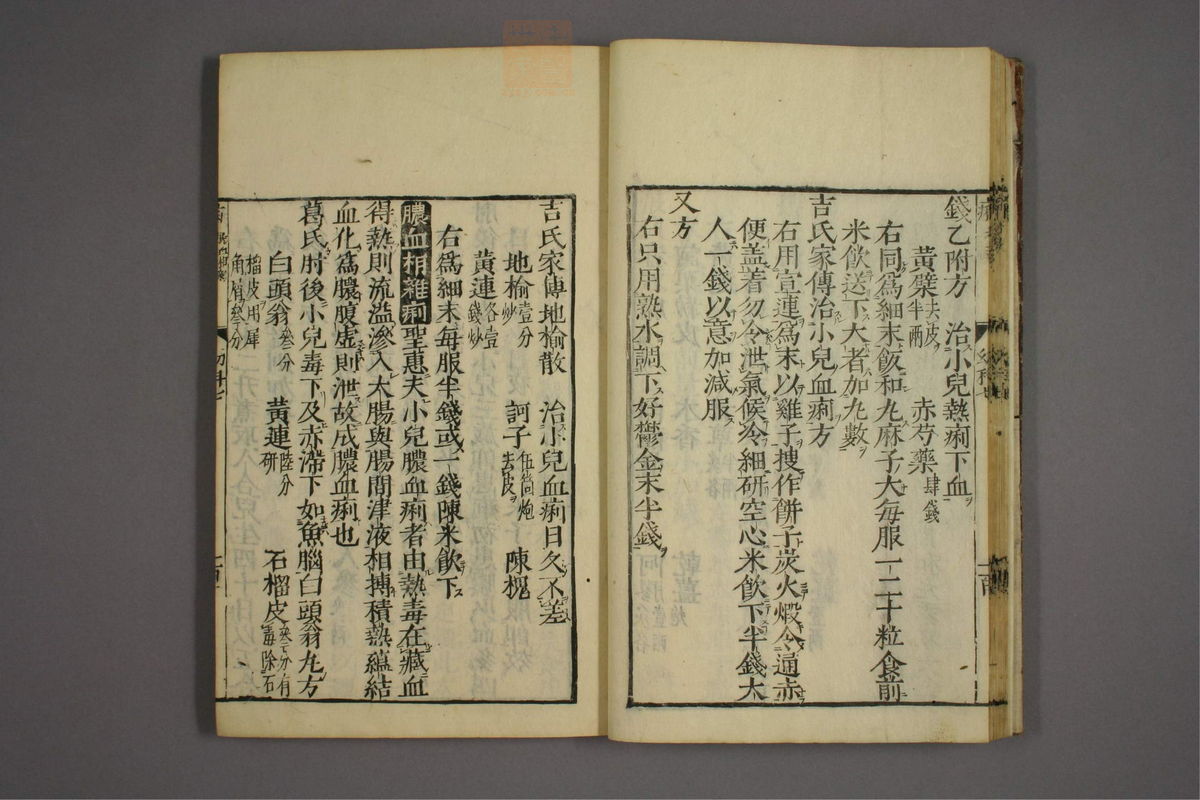 錢乙附方　治小兒熱痢下血
黃蘗去皮半兩　赤芍藥肆錢
右同為細末飯和丸麻子大每服一二十粒食前
米飲送下大者加丸數
吉氏家傳治小兒血痢方
右用宣連為末以雞子搜作餅子炭火煅令通赤
便盖着勿令泄氣候冷細研空心米飲下半錢大
人一錢以意加減服
又方
右只用熟水調下好鬱金末半錢
吉氏家傳地榆散　治小兒血痢日久不差
地榆壹分炒　訶子伍箇炮去皮　陳槐
黃連各壹錢炒
右為細末每服半錢或一錢陳米飲下
膿血相雜痢聖惠夫小兒膿血痢者由熱毒在藏血
得熱則流溢滲入大腸與腸間津液相搏積熱蘊結
血化為膿腹虛則泄故成膿血痢也
葛氏肘後小兒毒下及赤滯下如魚腦白頭翁丸方
白頭翁叁分　黃連陸分研　石榴皮叁分有毒除石
榴皮用犀角屑叁分